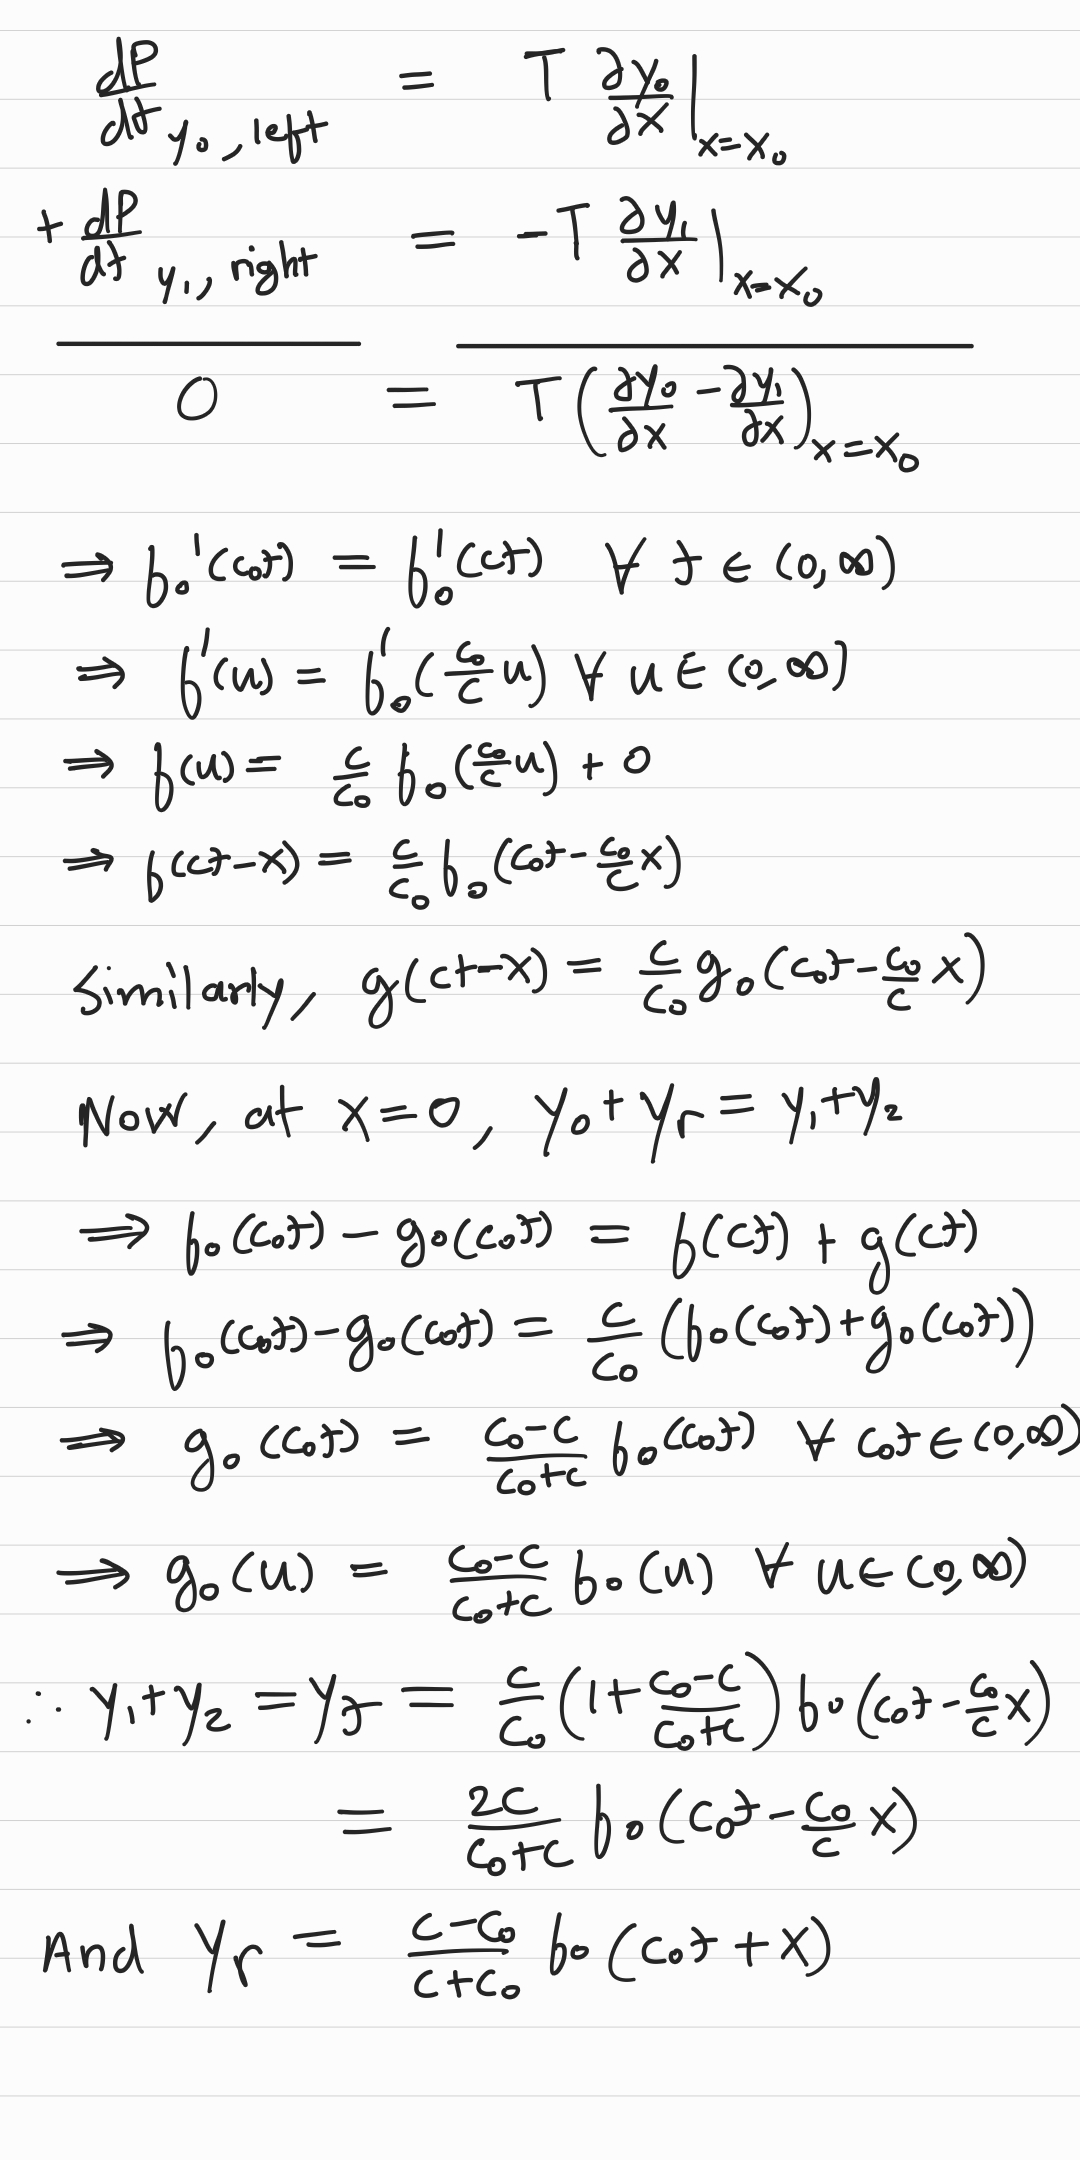 dP/dt y₀, left = T ∂y₀/∂x |ₓ₌ₓ₀
+ dP/dt y₁, right = -T ∂y₁/∂x |ₓ₌ₓ₀
0 = T(∂y₀/∂x - ∂y₁/∂x) x=x₀
⇒ f₀'(c₀t) = f₀'(ct) ∀ t ∈ (0,∞)
⇒ f'(u) = f₀'(c₀/c u) ∀ u ∈ (0,∞)
⇒ f(u) = c/c₀ f₀(c₀/c u) + 0
⇒ f(ct-x) = c/c₀ f₀(c₀t - c₀/c x)
Similarly, g(ct-x) = c/c₀ g₀(c₀t - c₀/c x)
Now, at x=0, y₀+yᵣ = y₁+y₂
⇒ f₀(c₀t) - g₀(c₀t) = f(ct) + g(ct)
⇒ f₀(c₀t) - g₀(c₀t) = c/c₀ (f₀(c₀t) + g₀(c₀t))
⇒ g₀(c₀t) = c₀-c/c₀+c f₀(c₀t) ∀ c₀t ∈ (0,∞)
⇒ g₀(u) = c₀-c/c₀+c f₀(u) ∀ u ∈ (0,∞)
∴ y₁+y₂ = yₜ = c/c₀ (1 + c₀-c/c₀+c) f₀(c₀t - c₀/c x)
= 2c/c₀+c f₀(c₀t - c₀/c x)
And yᵣ = c-c₀/c+c₀ f₀(c₀t + x)